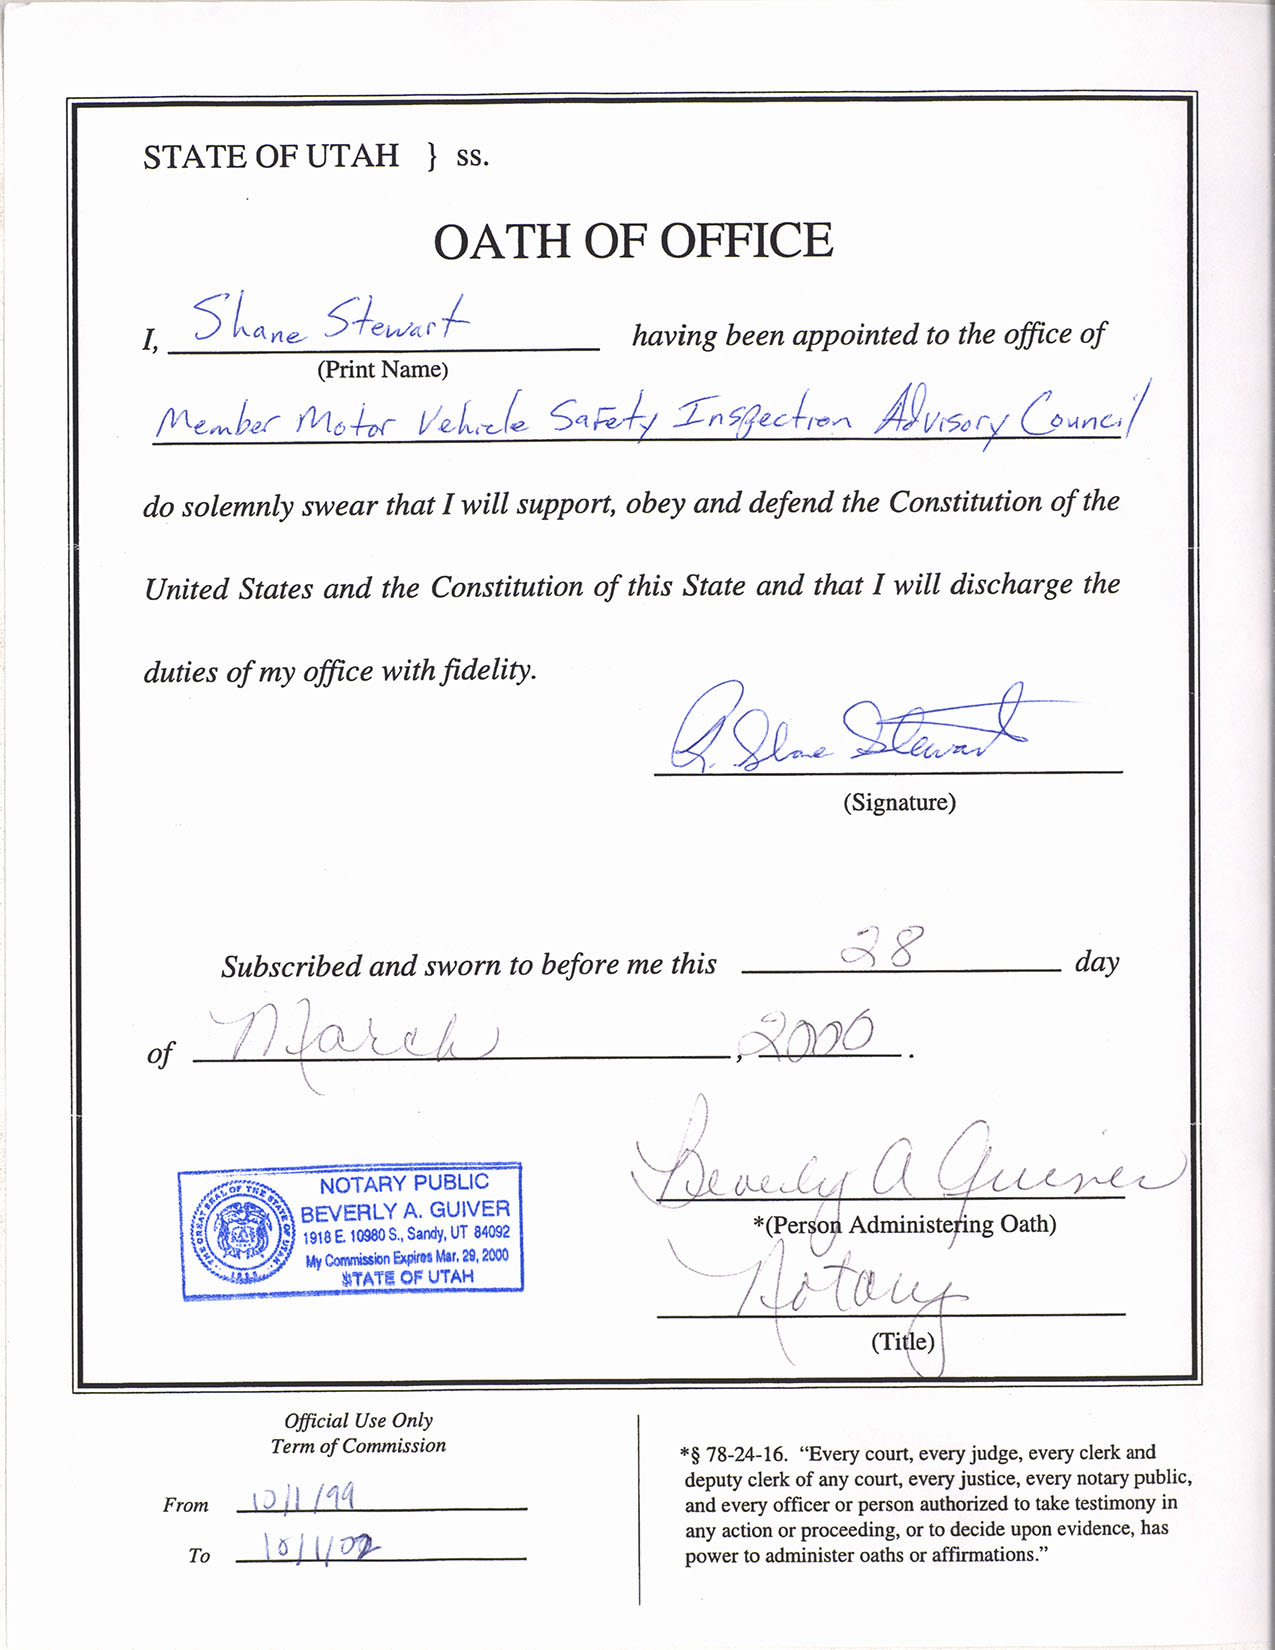 STATE OF UTAH } ss.
OATH OF OFFICE
I, Shane Stewart having been appointed to the office of
(Print Name)
Member Motor Vehicle Safety Inspection Advisory Council
do solemnly swear that I will support, obey and defend the Constitution of the
United States and the Constitution of this State and that I will discharge the
duties of my office with fidelity.
R. Shane Stewart
(Signature)
Subscribed and sworn to before me this 28 day
of March, 2000.
Beverly A Guiver
*(Person Administering Oath)
Notary
(Title)
THE GREAT SEAL OF THE STATE OF UTAH
1896
NOTARY PUBLIC
BEVERLY A. GUIVER
1918 E. 10980 S., Sandy, UT 84092
My Commission Expires Mar. 29, 2000
STATE OF UTAH
Official Use Only
Term of Commission
From 10/1/99
To 10/1/02
*§ 78-24-16. “Every court, every judge, every clerk and
deputy clerk of any court, every justice, every notary public,
and every officer or person authorized to take testimony in
any action or proceeding, or to decide upon evidence, has
power to administer oaths or affirmations.”